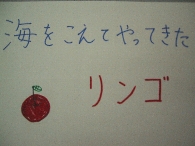 海をこえてやってきた
リンゴ